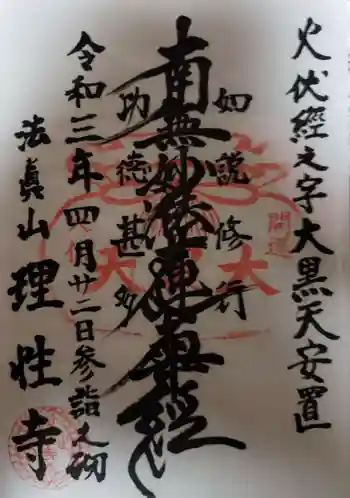 火伏經之字大黒天安置
如説修行
南無妙法蓮華經
功徳甚多
令和三年四月廿二日参詣之砌
法眞山
理性寺
開運
大黒天